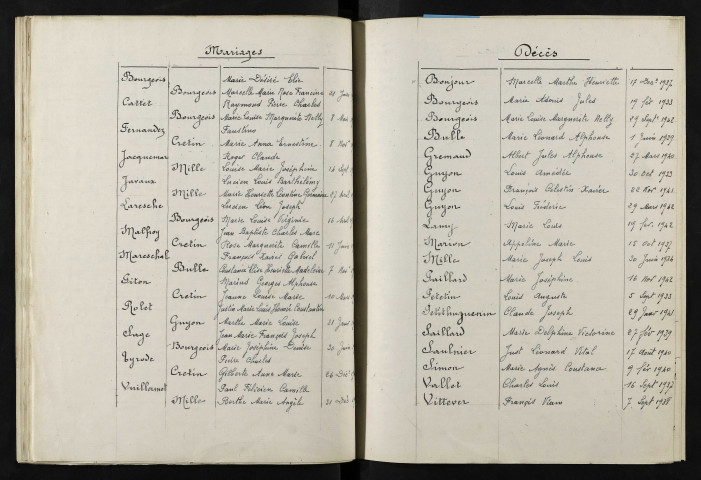 Mariages
Bourgeois Marie Désiré Elie
Bourgeois Marcelle Marie Rose Francine
Cattet Raymond Pierre Charles
Bourgeois Marie Louise Marguerite Nelly 8
Fernandez Faustino
Cretin Marie Anna Ernestine 8
Jacquemar Roger Claude
Mille Louise Marie Joséphine 14 Sept
Javaux Lucien Louis Barthélémy
Mille Marie Henriette Léontine Germaine
Laresche Lucien Léon Joseph
Bourgeois Marie Louise Virginie
Malfroy Jean Baptiste Charles Marc
Cretin Rose Marguerite Camille 11
Mareschal François Xavier Gabriel
Bulle Henriette Madeleine 7
Giton Marius Georges Alphonse
Cretin Jeanne Louise Marie
Robet
Guyon Marthe Marie Louise
Jean Marie François Joseph
Bourgeois Marie Joséphine Denise
Tyrode Pierre Charles
Cretin Gilberte Anna Marie
Vuillermot Paul Félicien Camille
Mille Berthe Marie Angèle 21
Décès
Bonjour Marcelle Marthe Henriette 17 Dec 1937
Bourgeois Marie Jules 19 fév 1933
Bourgeois Marie Louise Marguerite Nelly 09 Sept 1942
Bulle Marie Léonard Alphonse 1 Juin 1939
Gremaud Albert Jules Alphonse 27 Mars 1940
Guyon Louis Amédée 30 Oct 1923
Guyon François Célestin Xavier 22 Nov 1941
Guyon Louis Fréderic 09 Mars 1942
Lamy Marie Louis 19 fév. 1942
Marion Appoline Marie 15 Oct 1937
Mille Marie Joseph Louis 30 Juin 1936
Paillard Marie Joséphine 16 Nov 1942
Petetin Louis Auguste 5 Sept 1933
Petithuguenin Claude Joseph 29 Janv 1941
Saillard Marie Delphine Victorine 27 fév 1939
Saulnier Just Léonard Vital 17 Août 1940
Simon Marie Agnès Constance 9 fév 1940
Vallet Charles Louis 16 Sept 1937
Vittever François 7 Sept 1938